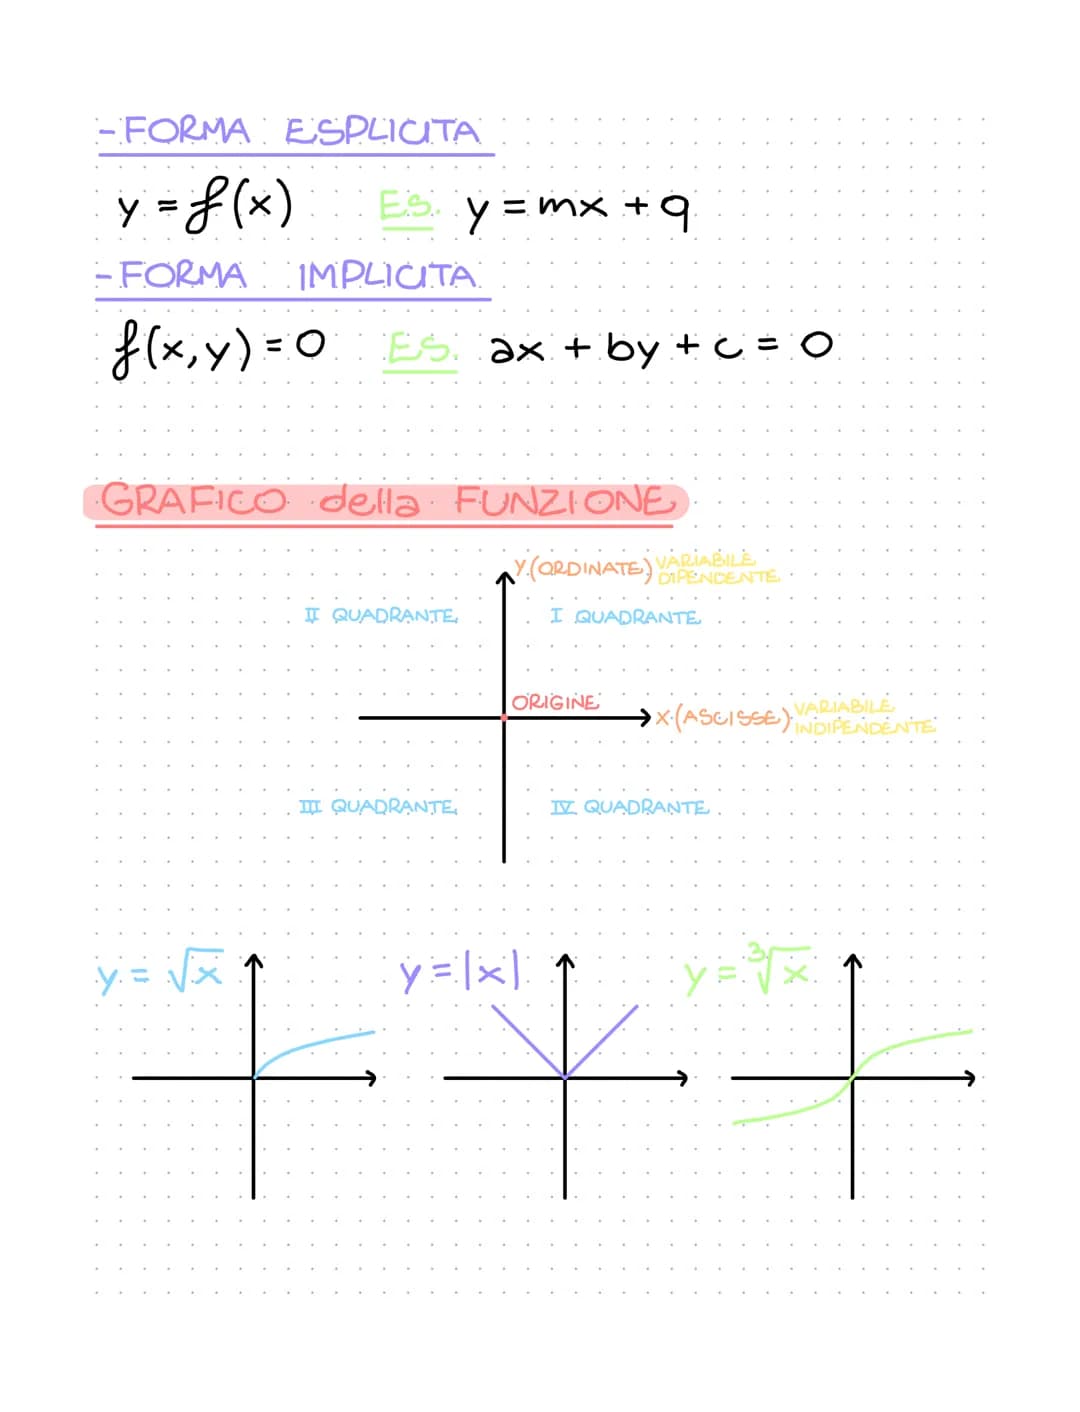 - FORMA ESPLICITA
y = f(x) ES. y = mx + q
- FORMA IMPLICITA
f(x,y) = 0 ES. ax + by + c = 0
GRAFICO della FUNZIONE
y (ORDINATE) VARIABILE DIPENDENTE
II QUADRANTE I QUADRANTE
ORIGINE
x (ASCISSE) VARIABILE INDIPENDENTE
III QUADRANTE IV QUADRANTE
y = √x y = |x| y = ∛x